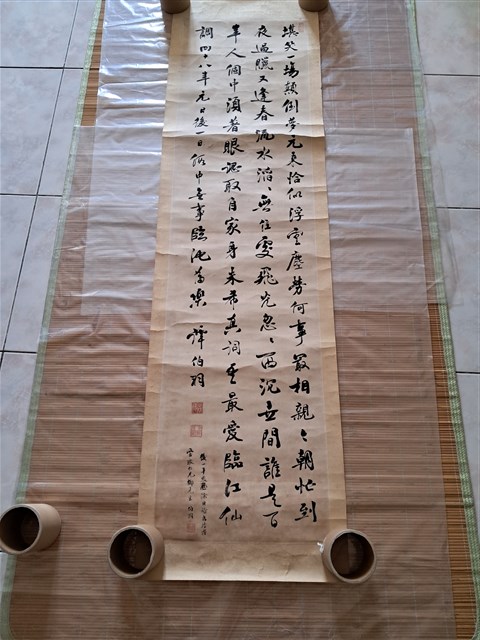 堪笑一場顛倒夢元來恰似浮雲塵勞何事最相親今朝忙到
夜過臘又逢春流水滔々無住處飛光忽々西沉世間誰是百
年人個中須著眼認取自家身朱希真詞余最愛臨江仙
調四十八年元日後一日無事臨池為樂 譚伯羽